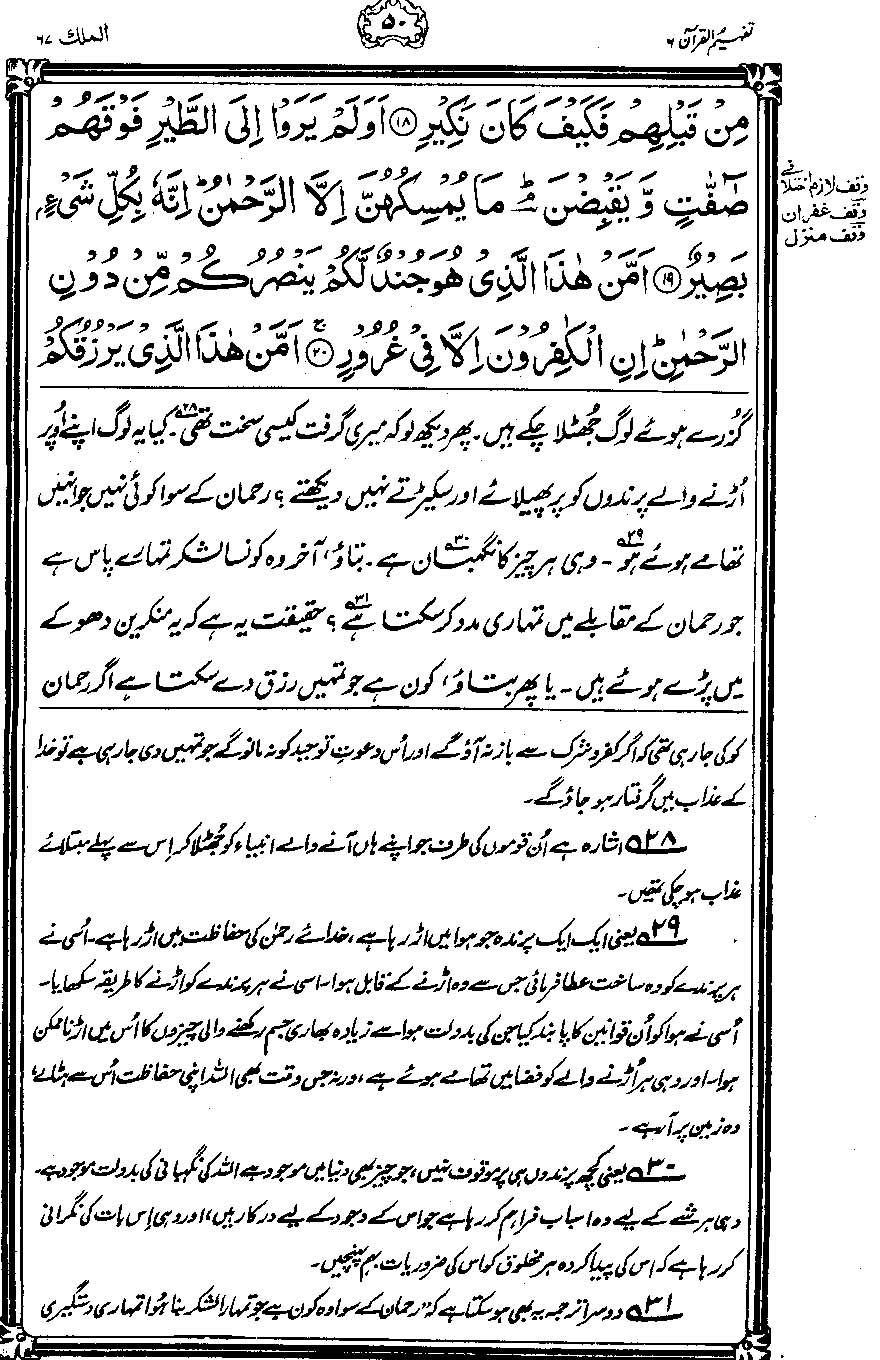 تفہیم القرآن ۶
۵۰
الملک ۶۷
مِنْ قَبْلِهِمْ فَكَيْفَ كَانَ نَكِيْرِ ﴿۱۸﴾ اَوَلَمْ يَرَوْا اِلَى الطَّيْرِ فَوْقَهُمْ
صٰٓفّٰتٍ وَّيَقْبِضْنَ ؔۘ مَا يُمْسِكُهُنَّ اِلَّا الرَّحْمٰنُ ؕ اِنَّهٗ بِكُلِّ شَيْءٍۭ
بَصِيْرٌ ﴿۱۹﴾ اَمَّنْ هٰذَا الَّذِيْ هُوَ جُنْدٌ لَّكُمْ يَنْصُرُكُمْ مِّنْ دُوْنِ
الرَّحْمٰنِ ؕ اِنِ الْكٰفِرُوْنَ اِلَّا فِيْ غُرُوْرٍ ﴿۲۰﴾ ۚ اَمَّنْ هٰذَا الَّذِيْ يَرْزُقُكُمْ
وقف لازم اختلافی
وقف غفران
وقف منزل
گزرے ہوئے لوگ جُھٹلا چکے ہیں۔ پھر دیکھ لو کہ میری گرفت کیسی سخت تھی۲۸؎۔ کیا یہ لوگ اپنے اُوپر
اُڑنے والے پرندوں کو پر پھیلائے اور سکیڑتے نہیں دیکھتے؟ رحمان کے سوا کوئی نہیں جو انہیں
تھامے ہوئے ہو۲۹؎۔ وہی ہر چیز کا نگہبان ہے۳۰؎۔ بتاؤ، آخر وہ کونسا لشکر تمہارے پاس ہے
جو رحمان کے مقابلے میں تمہاری مدد کر سکتا ہے۳۱؎؟ حقیقت یہ ہے کہ یہ منکرین دھوکے
میں پڑے ہوئے ہیں۔ یا پھر بتاؤ، کون ہے جو تمہیں رزق دے سکتا ہے اگر رحمان
کو کی جا رہی تھی کہ اگر کفر و شرک سے باز نہ آؤ گے اور اُس دعوتِ توحید کو نہ مانو گے جو تمہیں دی جا رہی ہے تو خدا
کے عذاب میں گرفتار ہو جاؤ گے۔
۲۸؎ اشارہ ہے اُن قوموں کی طرف جو اپنے ہاں آنے والے انبیاء کو جُھٹلا کر اِس سے پہلے مبتلائے
عذاب ہو چکی تھیں۔
۲۹؎ یعنی ایک ایک پرندہ جو ہوا میں اڑ رہا ہے، خدائے رحمٰن کی حفاظت میں اڑ رہا ہے۔ اُسی نے
ہر پرندے کو وہ ساخت عطا فرمائی جس سے وہ اڑنے کے قابل ہوا۔ اسی نے ہر پرندے کو اڑنے کا طریقہ سکھایا۔
اُسی نے ہوا کو اُن قوانین کا پابند کیا جن کی بدولت ہوا سے زیادہ بھاری جسم رکھنے والی چیزوں کا اُس میں اڑنا ممکن
ہوا۔ اور وہی ہر اُڑنے والے کو فضا میں تھامے ہوئے ہے، ورنہ جس وقت بھی اللہ اپنی حفاظت اُس سے ہٹالے،
وہ زمین پر آ رہے۔
۳۰؎ یعنی کچھ پرندوں ہی پر موقوف نہیں، جو چیز بھی دنیا میں موجود ہے اللہ کی نگہبانی کی بدولت موجود ہے۔
وہی ہر شے کے لیے وہ اسباب فراہم کر رہا ہے جو اس کے وجود کے لیے درکار ہیں، اور وہی اِس بات کی نگرانی
کر رہا ہے کہ اس کی پیدا کردہ ہر مخلوق کو اس کی ضروریات بہم پہنچیں۔
۳۱؎ دوسرا ترجمہ یہ بھی ہو سکتا ہے کہ ”رحمان کے سوا وہ کون ہے جو تمہارا لشکر بنا ہُوا تمہاری دستگیری